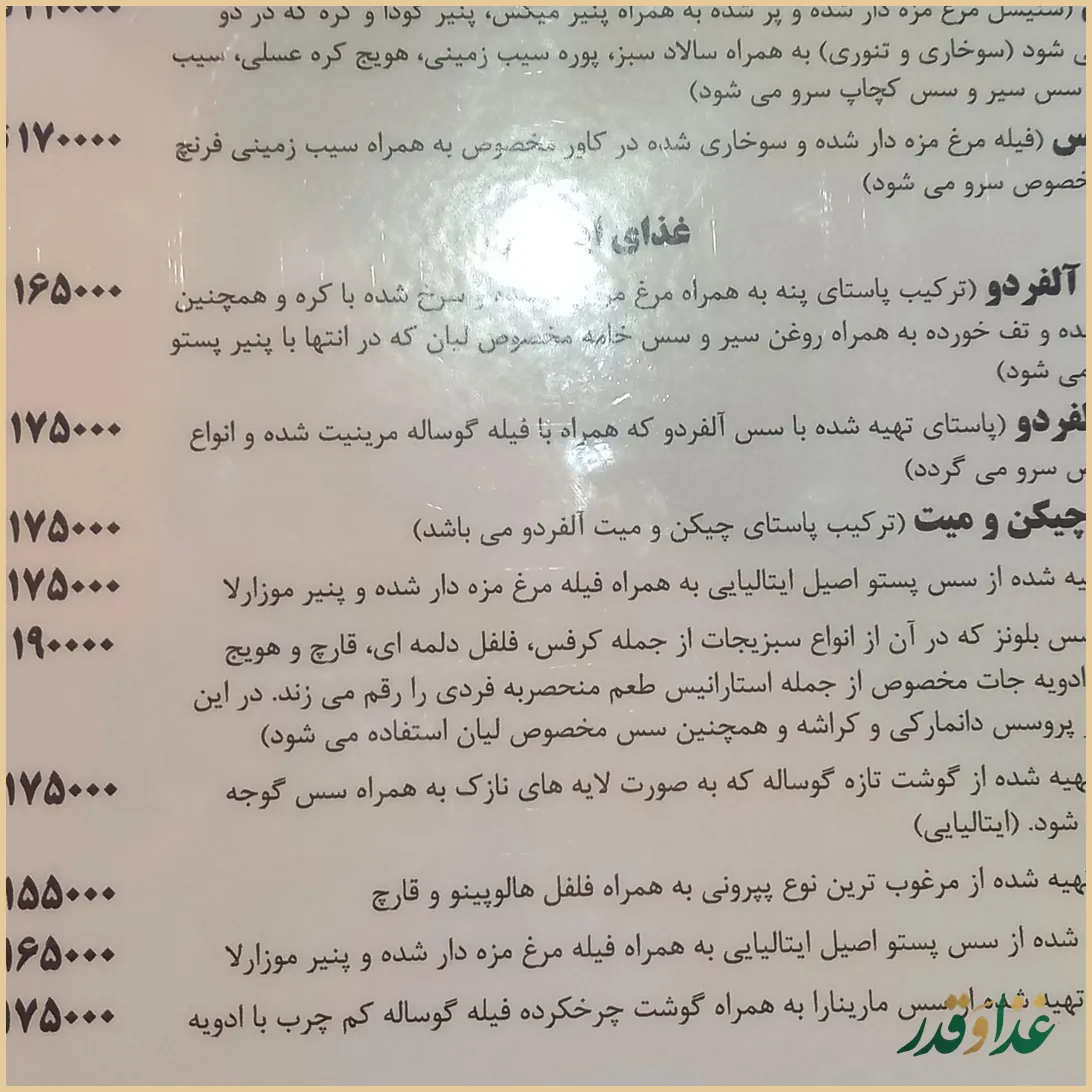 (شنیسل مرغ مزه دار شده و پر شده به همراه پنیر میکس، پنیر گودا و کره که در دو
شود (سوخاری و تنوری) به همراه سالاد سبز، پوره سیب زمینی، هویج کره عسلی، سیب
سس سیر و سس کچاپ سرو می شود)
(فیله مرغ مزه دار شده و سوخاری شده در کاور مخصوص به همراه سیب زمینی فرنچ ۱۷۰۰۰۰
سرو می شود)
غذای
آلفردو (ترکیب پاستای پنه به همراه مرغ سرخ شده با کره و همچنین ۱۶۵۰۰۰
و تف خورده به همراه روغن سیر و سس خامه مخصوص لیان که در انتها با پنیر پستو
می شود)
(پاستای تهیه شده با سس آلفردو که همراه با فیله گوساله مرینیت شده و انواع ۱۷۵۰۰۰
سرو می گردد)
چیکن و میت (ترکیب پاستای چیکن و میت آلفردو می باشد) ۱۷۵۰۰۰
شده از سس پستو اصیل ایتالیایی به همراه فیله مرغ مزه دار شده و پنیر موزارلا ۱۷۵۰۰۰
بلونز که در آن از انواع سبزیجات از جمله کرفس، فلفل دلمه ای، قارچ و هویج ۱۹۰۰۰۰
ادویه جات مخصوص از جمله استارانیس طعم منحصربه فردی را رقم می زند. در این
پروسس دانمارکی و کراشه و همچنین سس مخصوص لیان استفاده می شود)
تهیه شده از گوشت تازه گوساله که به صورت لایه های نازک به همراه سس گوجه ۱۷۵۰۰۰
شود. (ایتالیایی)
تهیه شده از مرغوب ترین نوع پپرونی به همراه فلفل هالوپینو و قارچ ۱۵۵۰۰۰
شده از سس پستو اصیل ایتالیایی به همراه فیله مرغ مزه دار شده و پنیر موزارلا ۱۶۵۰۰۰
تهیه شده از سس مارینارا به همراه گوشت چرخکرده فیله گوساله کم چرب با ادویه ۱۷۵۰۰۰
غذا و قدر